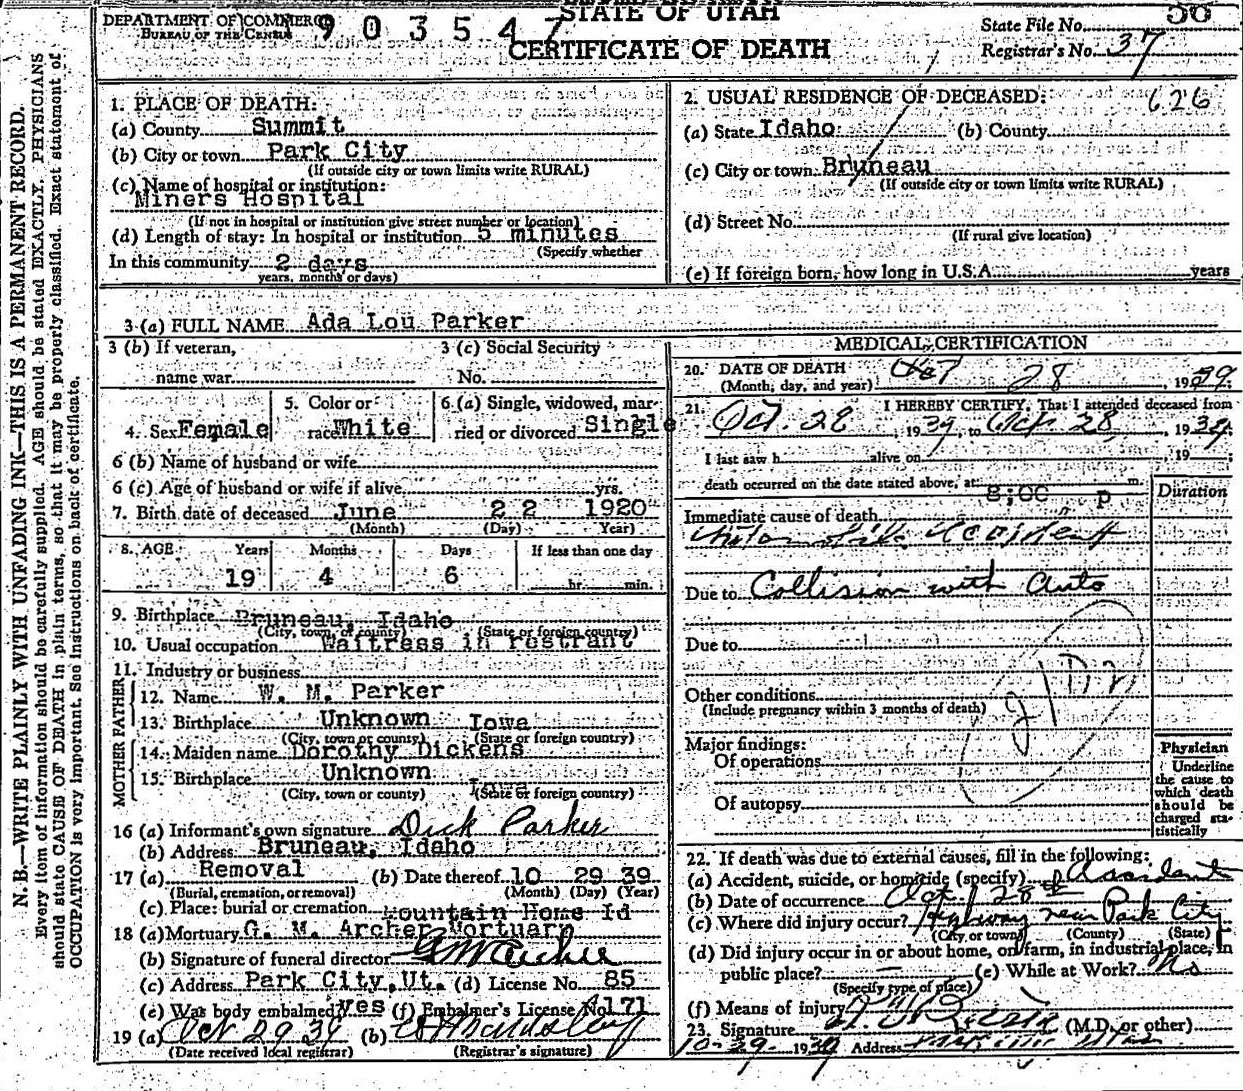 DEPARTMENT OF COMMERCE
BUREAU OF THE CENSUS
903547
STATE OF UTAH
CERTIFICATE OF DEATH
State File No. 56
Registrar's No. 37
N. B.—WRITE PLAINLY WITH UNFADING INK—THIS IS A PERMANENT RECORD.
Every item of information should be carefully supplied. AGE should be stated EXACTLY. PHYSICIANS
should state CAUSE OF DEATH in plain terms, so that it may be properly classified. Exact statement of
OCCUPATION is very important. See instructions on back of certificate.
1. PLACE OF DEATH:
(a) County Summit
(b) City or town Park City
(If outside city or town limits write RURAL)
(c) Name of hospital or institution:
Miners Hospital
(If not in hospital or institution give street number or location)
(d) Length of stay: In hospital or institution 5 minutes
(Specify whether
In this community 2 days
years, months or days)
2. USUAL RESIDENCE OF DECEASED: 626
(a) State Idaho (b) County
(c) City or town Bruneau
(If outside city or town limits write RURAL)
(d) Street No.
(If rural give location)
(e) If foreign born, how long in U.S.A. years
3 (a) FULL NAME Ada Lou Parker
3 (b) If veteran, 3 (c) Social Security
name war No.
4. Sex Female 5. Color or race White 6 (a) Single, widowed, married or divorced Single
6 (b) Name of husband or wife
6 (c) Age of husband or wife if alive yrs.
7. Birth date of deceased June 22 1920
(Month) (Day) Year)
8. AGE Years Months Days If less than one day
19 4 6 hr. min.
9. Birthplace Bruneau, Idaho
(City, town, or county) (State or foreign country)
10. Usual occupation Waitress in restrant
11. Industry or business
FATHER
12. Name W. M. Parker
13. Birthplace Unknown Iowa
(City, town or county) (State or foreign country)
MOTHER
14. Maiden name Dorothy Dickens
15. Birthplace Unknown Iowa
(City, town or county) (State or foreign country)
16 (a) Informant's own signature Dick Parker
(b) Address Bruneau, Idaho
17 (a) Removal (b) Date thereof 10 29 39
(Burial, cremation, or removal) (Month) (Day) (Year)
(c) Place: burial or cremation Mountain Home Id
18 (a) Mortuary G. M. Archer Mortuary
(b) Signature of funeral director GM Archer
(c) Address Park City, Ut. (d) License No. 85
(e) Was body embalmed yes (f) Embalmer's License A171
19 (a) Oct 29 39 (b)
(Date received local registrar) (Registrar's signature)
MEDICAL CERTIFICATION
20. DATE OF DEATH
(Month, day, and year) Oct 28, 1939.
21. I HEREBY CERTIFY, That I attended deceased from
Oct. 28, 1939, to Oct 28, 1939.
I last saw h alive on , 19 ;
death occurred on the date stated above, at 8;00 p m.
Duration
Immediate cause of death
Automobile accident
Due to Collision with Auto
Due to
Other conditions
(Include pregnancy within 3 months of death)
Major findings:
Of operations
Of autopsy
Physician
Underline
the cause to
which death
should be
charged sta-
tistically
22. If death was due to external causes, fill in the following:
(a) Accident, suicide, or homicide (specify) Accident
(b) Date of occurrence Oct. 28th
(c) Where did injury occur? Highway near Park City
(City or town) (County) (State)
(d) Did injury occur in or about home, on farm, in industrial place, in
public place? — (e) While at Work? No
(Specify type of place)
(f) Means of injury
23. Signature (M.D. or other)
10-29-1939 Address Utah